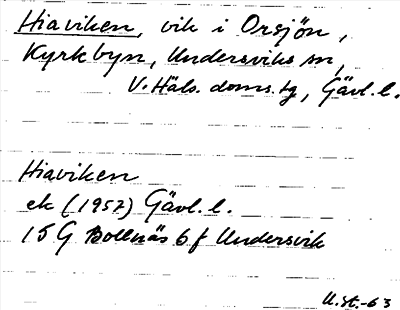 Hiaviken, vik i Orsjön,
Kyrkbyn, Undersviks sn,
V. Häls. doms.tg, Gävl.l.
Hiaviken
ek (1957) Gävl.l.
15G Bollnäs 6f Undersvik
U.st.-63